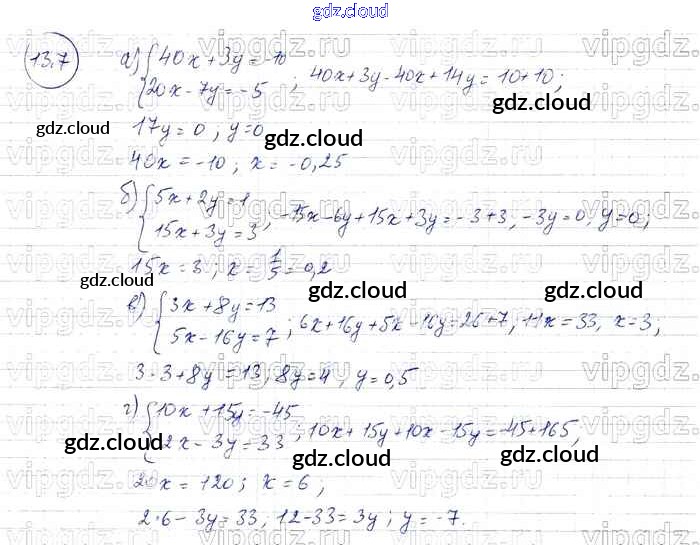 gdz.cloud
13.7 а) { 40x + 3y = -10
20x - 7y = -5 ; 40x+3y-40x+14y = 10+10;
17y = 0 , y=0
40x = -10 ; x = -0,25
б) { 5x + 2y = 1
15x + 3y = 3 , -15x-6y+15x+3y = -3+3, -3y=0, y=0;
15x = 3 ; x = 1/5 = 0,2
в) { 3x + 8y = 13
5x - 16y = 7 ; 6x+16y+5x-16y=26+7, 11x = 33, x=3,
3·3+8y = 13, 8y = 4 , y = 0,5
г) { 10x + 15y = -45
2x - 3y = 33 ; 10x+15y+10x-15y = -45+165,
20x = 120 ; x = 6 ;
2·6 - 3y = 33, 12-33 = 3y ; y = -7.
gdz.cloud
gdz.cloud
gdz.cloud
gdz.cloud
gdz.cloud
gdz.cloud
gdz.cloud
gdz.cloud
gdz.cloud
gdz.cloud
gdz.cloud
gdz.cloud